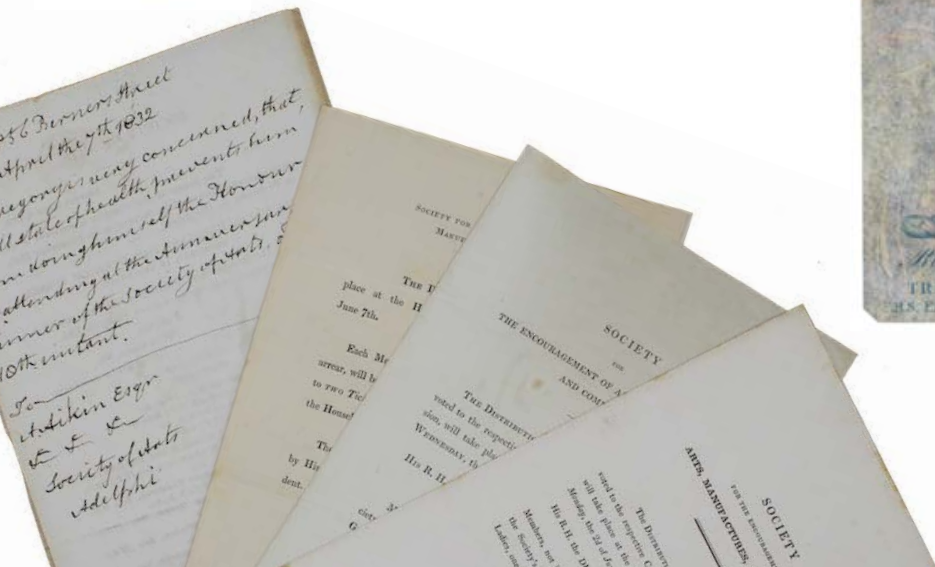 56 Berners Street
April the 7th 1832
regory is very concerned, that,
ll state of health, prevents him
doing himself the Honour
attending at the Anniversary
inner of the Society of Arts,
10th instant.
To
A Aikin Esqr
& & &
Society of Arts
Adelphi
SOCIETY FOR
MANUF
THE D
place at the H
June 7th.
Each Me
arrear, will b
to TWO Tic
the Housel
The
by His
dent.
SOCIETY
FOR
THE ENCOURAGEMENT OF A
AND COM
THE DISTRIBUTI
voted to the respecti
sion, will take pla
WEDNESDAY, th
His R. H.
M
ciety
G
SOCIETY
FOR THE ENCOURAGEM
ARTS, MANUFACTURES,
The Distribut
voted to the respective C
will take place at the
Monday, the 2d of Ju
His R.H. the D
Members, not
the Society's
Ladies, one
TR